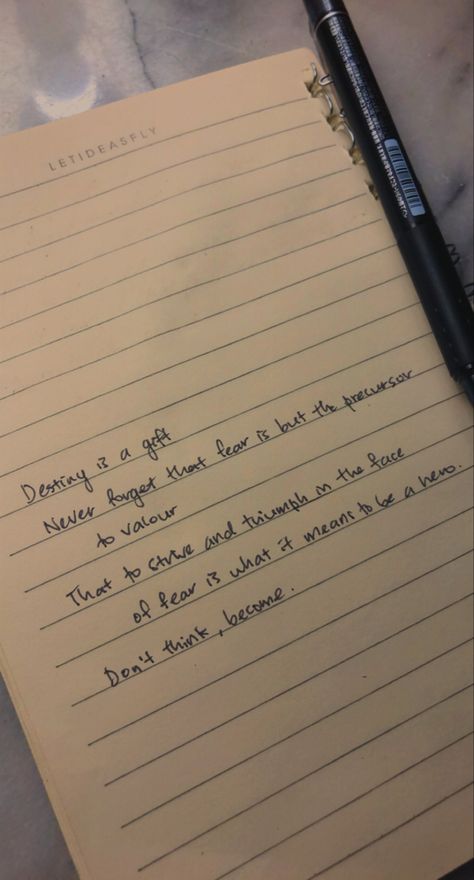 LETIDEASFLY
Destiny is a gift
Never forget that fear is but the precursor
to valour
That to strive and triumph in the face
of fear is what it means to be a hero.
Don't think, become.